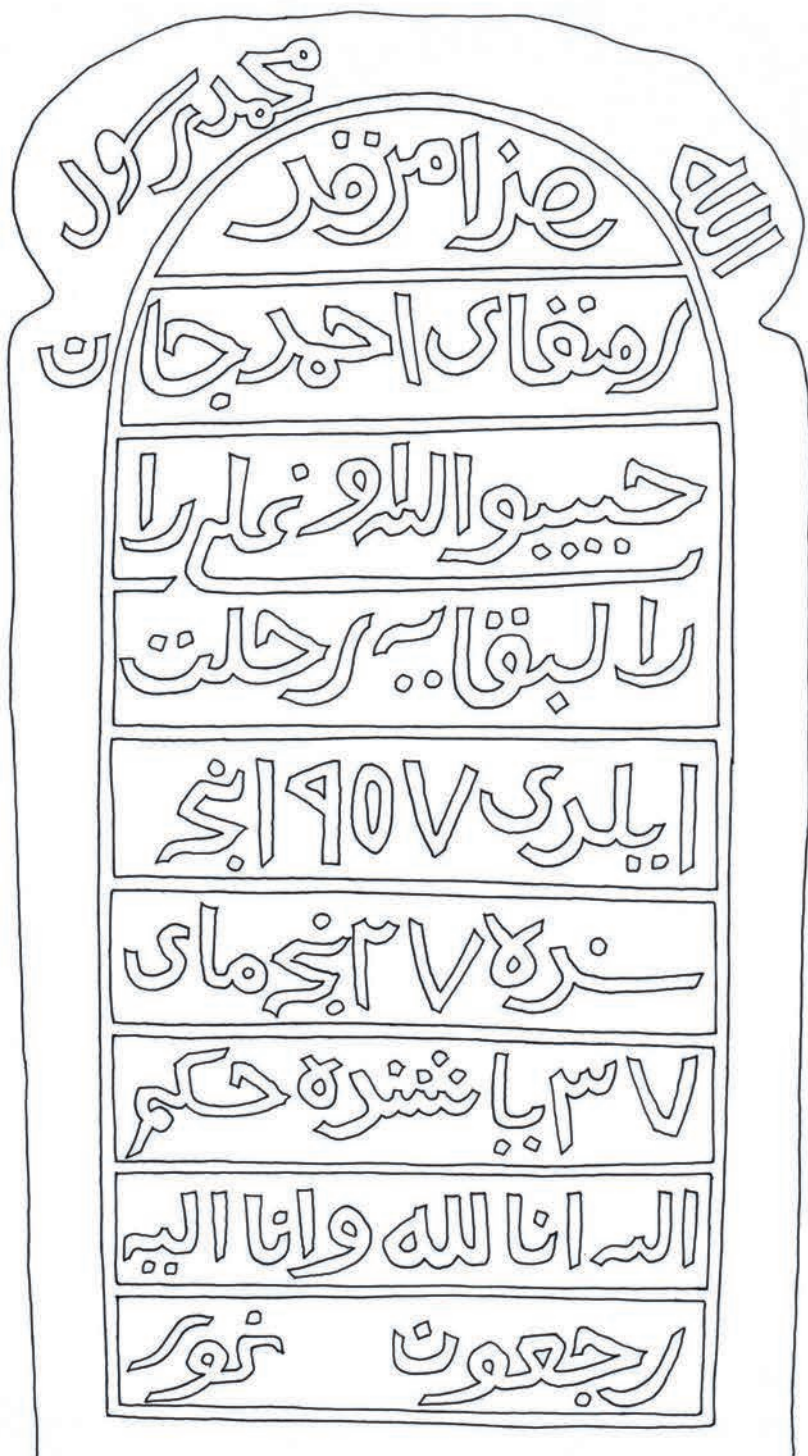 الله
محمد رسول
هذا مرقد
احمد جان
حبيبو الله اوغلى دا
را لبقايه رحلت
ايلدى ١٩٥٧ نجى
سنده ٢٧ نجى ماى
٣٧ ياشنده حكم
الله انا لله وانا اليه
رجعون نور